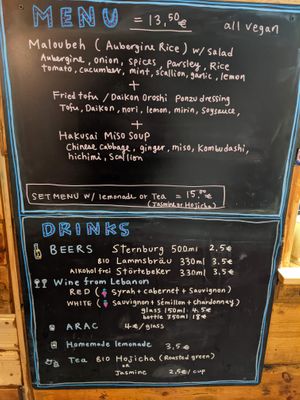 MENU = 13,50€ all vegan
Maloubeh (Aubergine Rice) w/ Salad
Aubergine, onion, spices, parsley, Rice
tomato, cucumber, mint, scallion, garlic, lemon
+
Fried tofu / Daikon Oroshi Ponzu dressing
Tofu, Daikon, nori, lemon, mirin, Soysauce,
+
Hakusai Miso Soup
Chinese Cabbage, ginger, miso, Kombudashi,
hichimi, Scallion
SET MENU w/ lemonade or Tea = 15,00€
(Jasmin or Hojicha)
DRINKS
BEERS Sternburg 500ml 2.5€
BIO Lammsbräu 330ml 3.5€
Alkohol frei Störtebeker 330ml 3.5€
Wine from Lebanon
RED (Syrah + cabernet + Sauvignon)
WHITE (Sauvignon + Sémillon + chardonnay)
glass 150ml 4.5€
bottle 750ml 18€
ARAC 4€/glass
Homemade lemonade 3,5€
Tea BIO Hojicha (Roasted green)
or
Jasmine 2,5€/cup